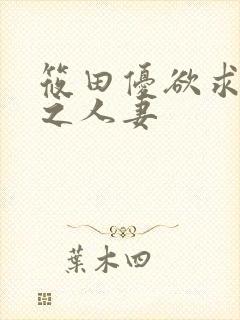 筱田優欲求
之人妻
葉木四